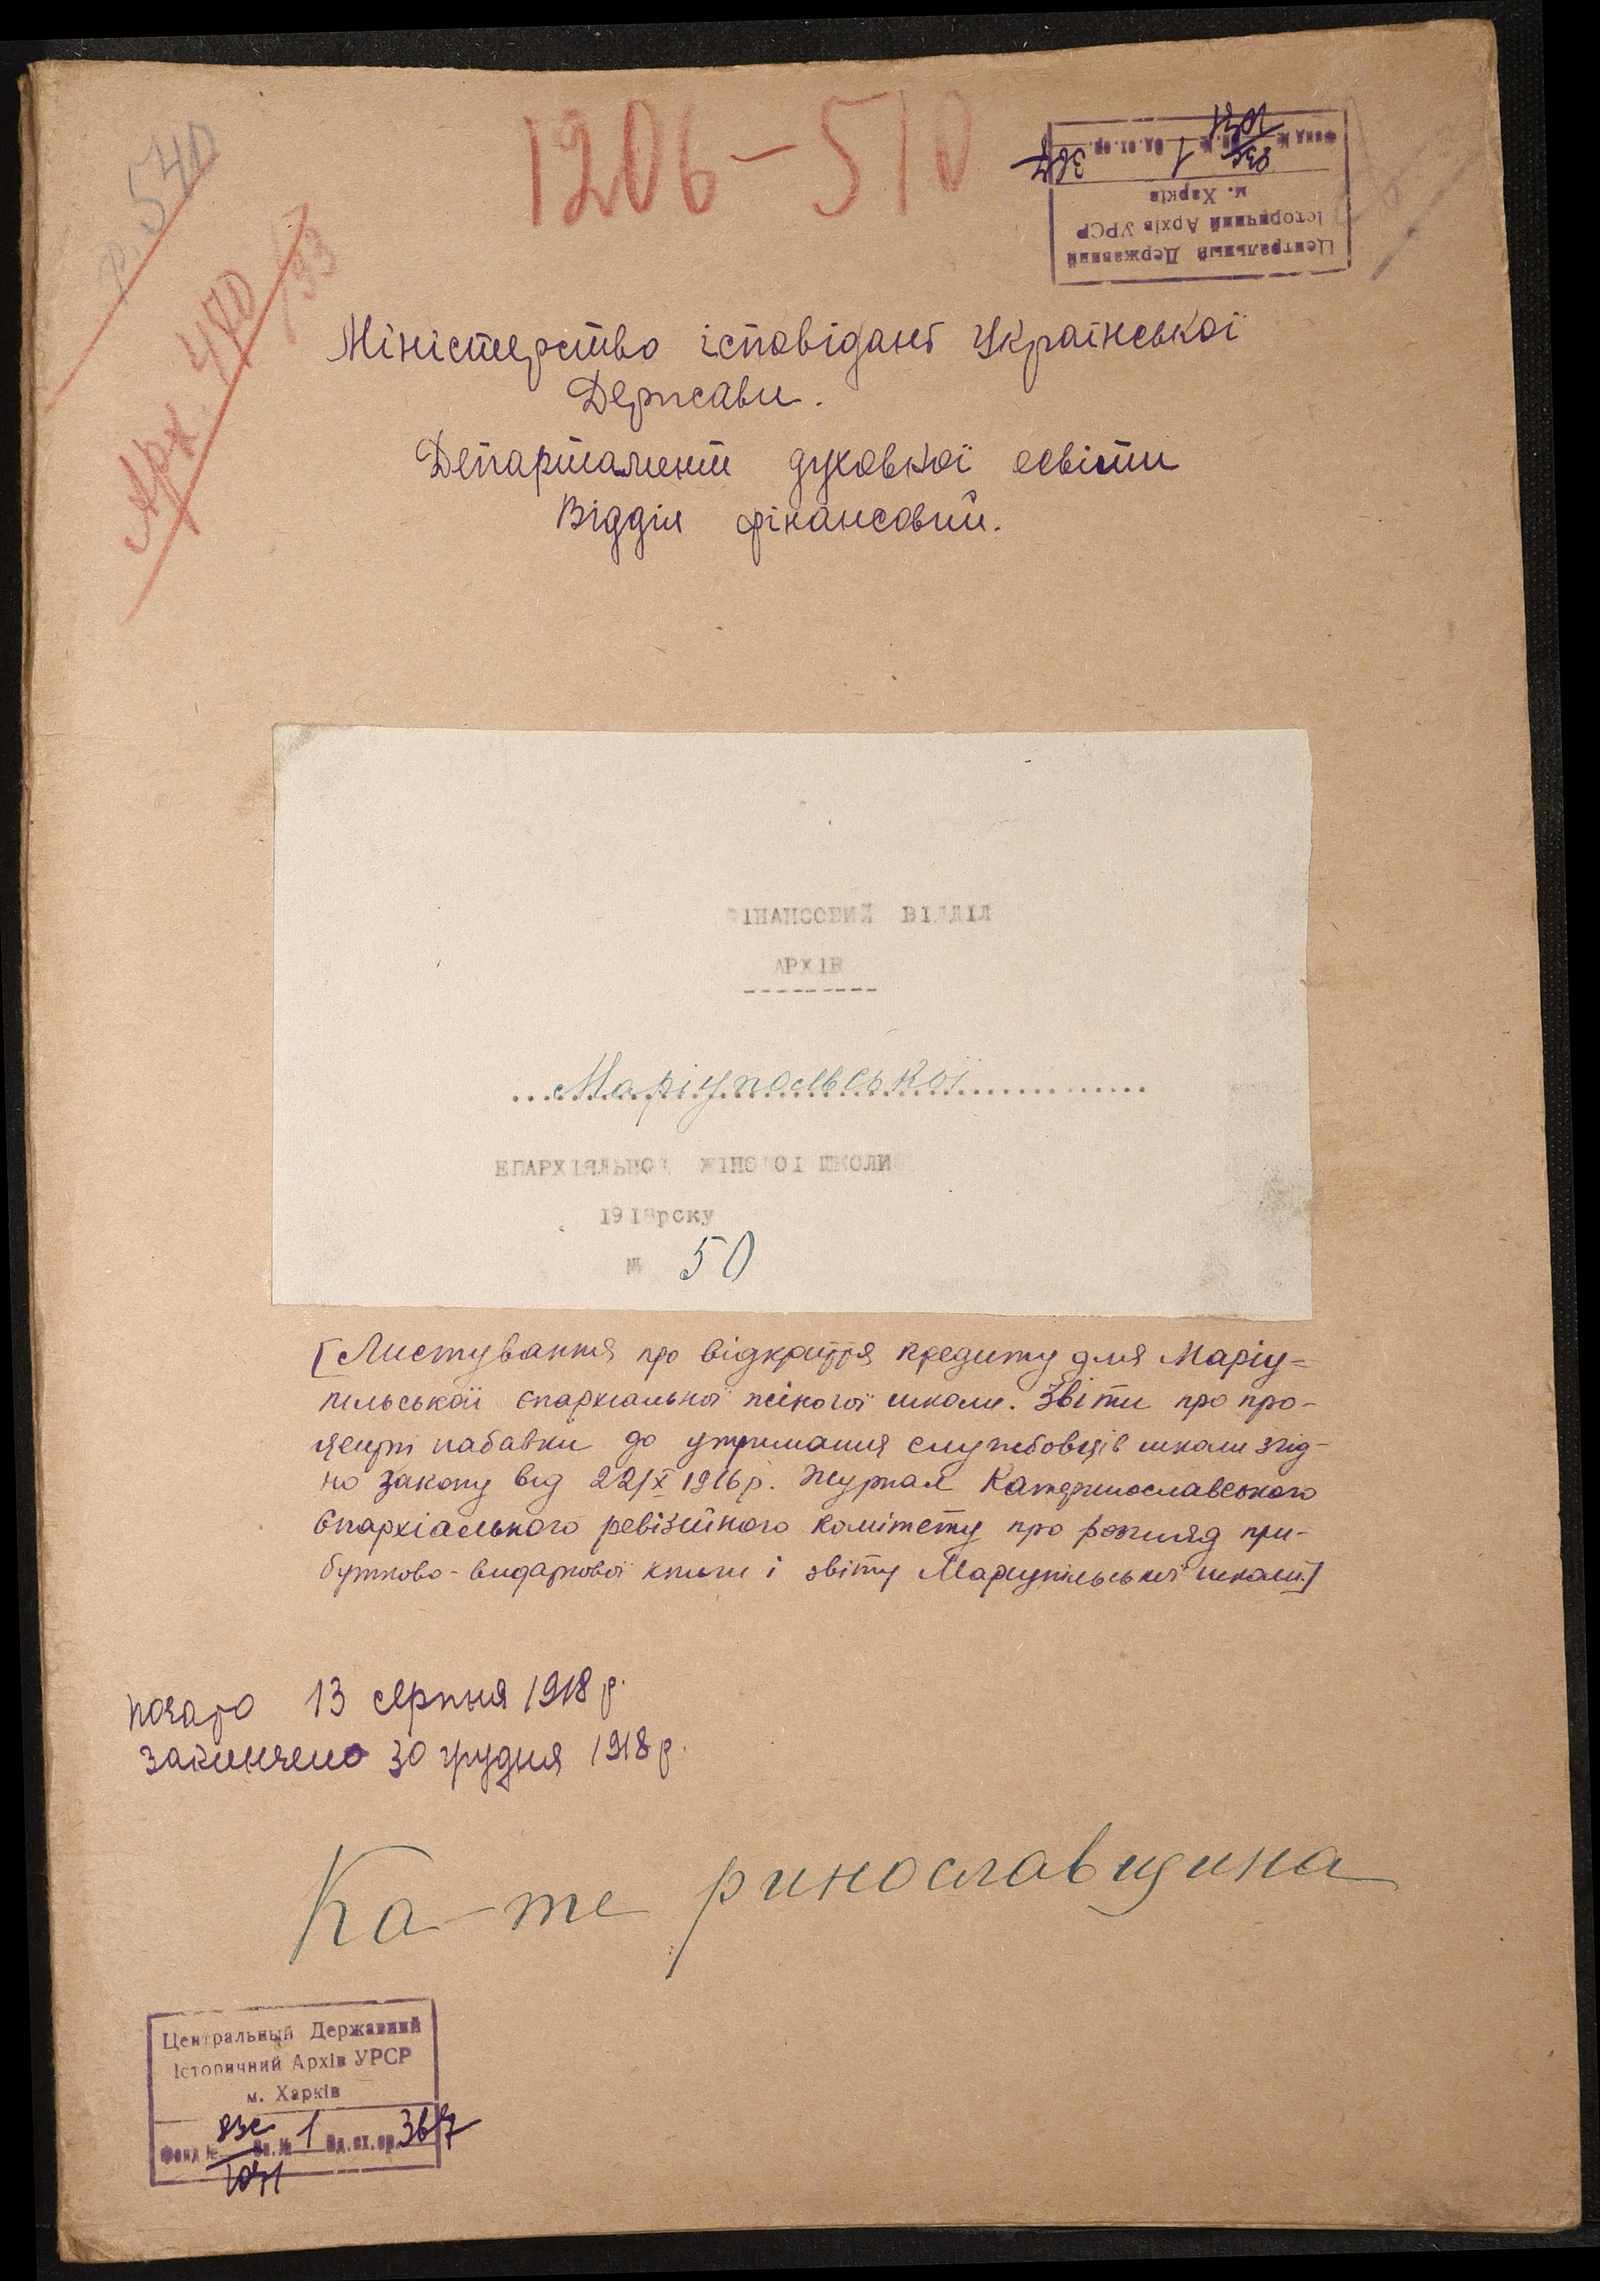 540
1206-510
Арх. 470
Центральный Державний
Історичний Архів УРСР
м. Харків
Фонд № Оп. № 1 Од. зх. ор.
1071
Міністерство ісповідань Української
Держави.
Департамент духовної освіти
Відділ фінансовий.
ФІНАНСОВИЙ ВІДДІЛ
АРХІВ
---------
Маріупольської
ЕПАРХІЯЛЬНОІ ЖІНОЧОІ ШКОЛИ
1918року
№ 50
[Листування про відкриття кредиту для Маріу=
пільської єпархіальної жіночої школи. Звіти про про-
центні набавки до утримання службовців школи згід-
но закону від 22/X 1916р. Журнал Катеринославського
Єпархіального ревізійного комітету про розгляд при-
бутково-видаткової книги і звіту Маріупільської школи.]
почато 13 серпня 1918 р.
закінчено 30 грудня 1918 р.
Ка-те ринославщина
Центральный Державний
Історичний Архів УРСР
м. Харків
Фонд № Оп. № 1 Од. зх. ор.
1071